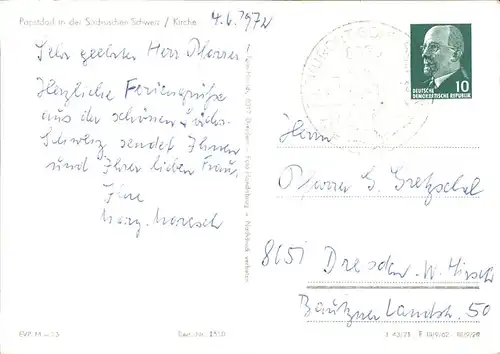 Papstdorf in der Sächsischen Schweiz / Kirche
4.6.1972
Sehr geehrter Herr Pfarrer
Herzliche Feriengrüße
aus der schönen Sächs.
Schweiz sendet Ihnen
und Ihrer lieben Frau,
Ihre
DEUTSCHE
DEMOKRATISCHE REPUBLIK
10
Herrn
Pfarrer G. Gretzschel
8051 Dresden-W. Hirsch
Bautzner Landstr. 50